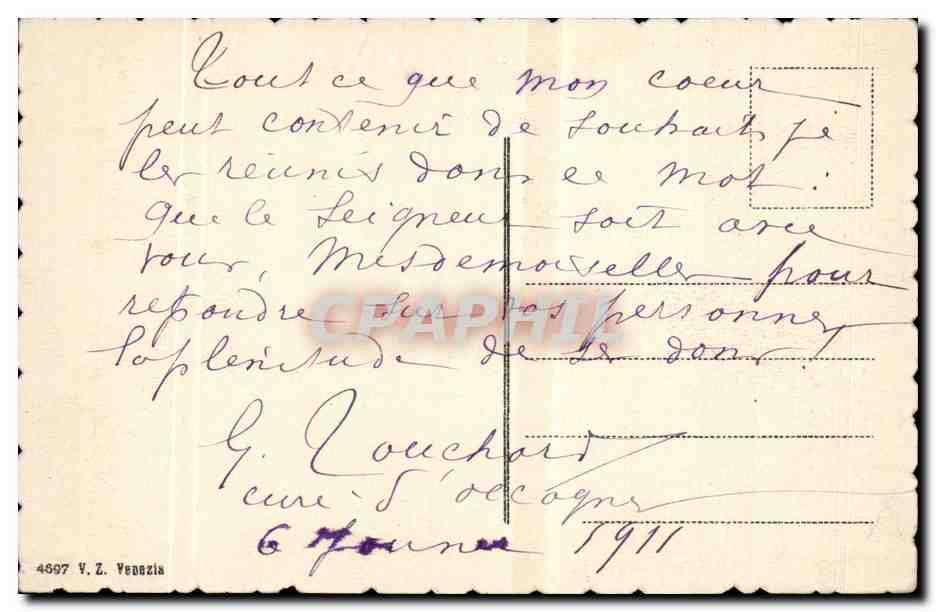 Tout ce que mon coeur
peut contenir de souhaits je
les réunis dans ce mot :
que le Seigneur soit avec
vous, Mesdemoiselles pour
répandre sur vos personnes
la plénitude de ses dons !
G. Touchard
curé d'occagnes
6 1911
4697 V. Z. Venezia
CPAPHIL